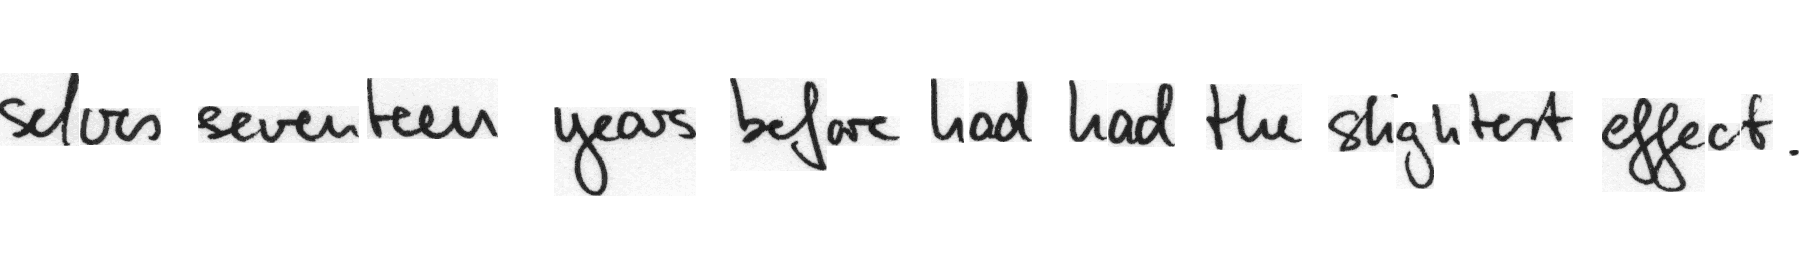 selves seventeen years before had had the slightest effect.